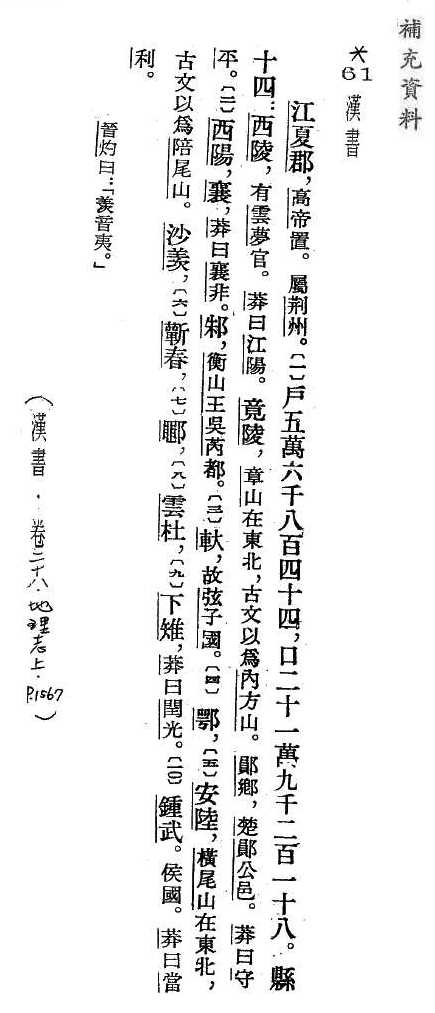 補充資料
*61 漢書
江夏郡，高帝置。屬荆州。〔一〕戶五萬六千八百四十四，口二十一萬九千二百一十八。縣
十四：西陵，有雲夢官。莽曰江陽。竟陵，章山在東北，古文以爲內方山。鄖鄉，楚鄖公邑。莽曰守
平。〔二〕西陽，襄，莽曰襄非。邾，衡山王吳芮都。〔三〕軑，故弦子國。〔四〕鄂，〔五〕安陸，橫尾山在東北，
古文以爲陪尾山。沙羨，〔六〕蘄春，〔七〕鄳，〔八〕雲杜，〔九〕下雉，莽曰閏光。〔一〇〕鍾武。侯國。莽曰當
利。
晉灼曰：「羨音夷。」
（漢書．卷二十八．地理志上．P.1567）